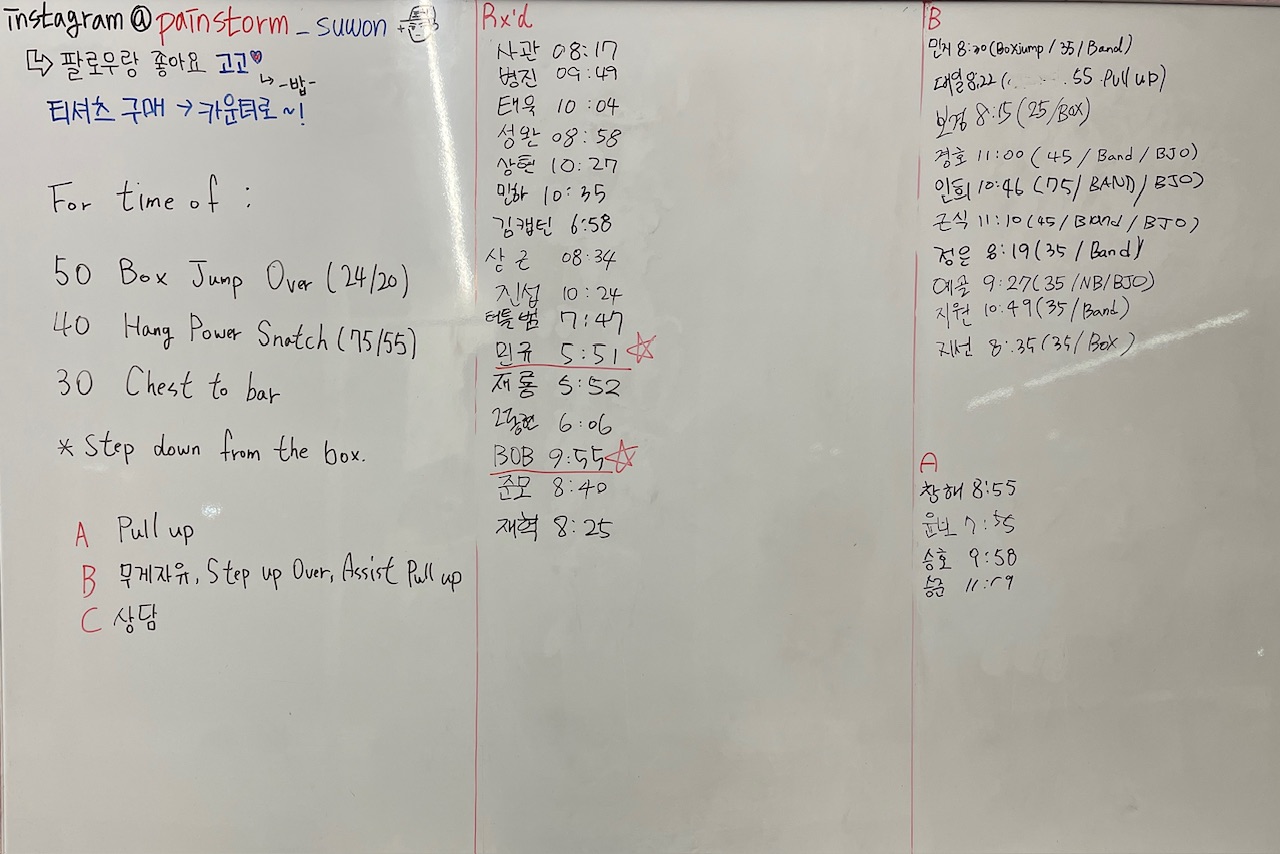 instagram@painstorm_suwon
팔로우랑 좋아요 고고
-밥-
티셔츠 구매 → 카운터로~!
For time of :
50 Box Jump Over (24/20)
40 Hang Power Snatch (75/55)
30 Chest to bar
* Step down from the box.
A Pull up
B 무게자유, Step up Over, Assist Pull up
C 상담
Rx'd
사관 08:17
병진 09:49
태욱 10:04
성완 08:58
상현 10:27
민하 10:35
김캡틴 6:58
상근 08:34
진섭 10:24
터틀범 7:47
민규 5:51
재룡 5:52
6:06
BOB 9:55
준모 8:40
재혁 8:25
B
민지 8:20 (Boxjump / 35 / Band)
대열 8:22 ( 55 Pull up)
보경 8:15 (25/Box)
경호 11:00 ( 45 / Band / BJO)
인희 10:46 (75/ BAND/ BJO)
근식 11:10 (45/ Band / BJO)
정은 8:19 (35 / Band)
예골 9:27 (35/NB/BJO)
지원 10:49 (35/Band)
지선 8:35 (35/ Box)
A
창해 8:55
7:55
승호 9:58
승준